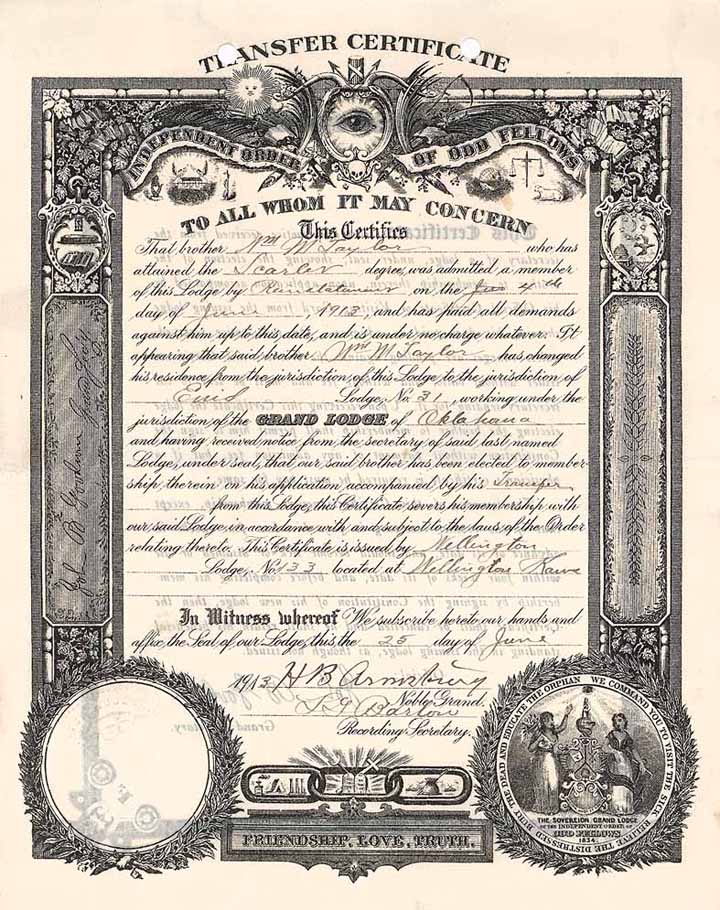 TRANSFER CERTIFICATE
INDEPENDENT ORDER OF ODD FELLOWS
TO ALL WHOM IT MAY CONCERN
This Certifies
That brother Wm M Taylor who has
attained the Scarlet degree, was admitted a member
of this Lodge by on the 4th
day of 1913 and has paid all demands
against him up to this date, and is under no charge whatever. It
appearing that said brother Wm M Taylor has changed
his residence from the jurisdiction of this Lodge to the jurisdiction of
Enid Lodge, No 31, working under the
jurisdiction of the GRAND LODGE of Oklahana
and having received notice from the secretary of said last named
Lodge, under seal, that our said brother has been elected to member-
ship therein on his application accompanied by his Transfer
from this Lodge, this Certificate severs his membership with
our said Lodge in accordance with and subject to the laws of the Order
relating thereto. This Certificate is issued by Wellington
Lodge, No 133 located at Wellington Kans
In Witness whereof We subscribe hereto our hands and
affix the Seal of our Lodge, this the 25 day of June
1913 H B Armsbury
Noble Grand.
Barlow
Recording Secretary.
John B Goodwin Grand Secy
WE COMMAND YOU TO VISIT THE SICK RELIEVE THE DISTRESSED BURY THE DEAD AND EDUCATE THE ORPHAN
THE SOVEREIGN GRAND LODGE
OF THE INDEPENDENT ORDER OF
ODD FELLOWS
1834
FRIENDSHIP, LOVE, TRUTH.